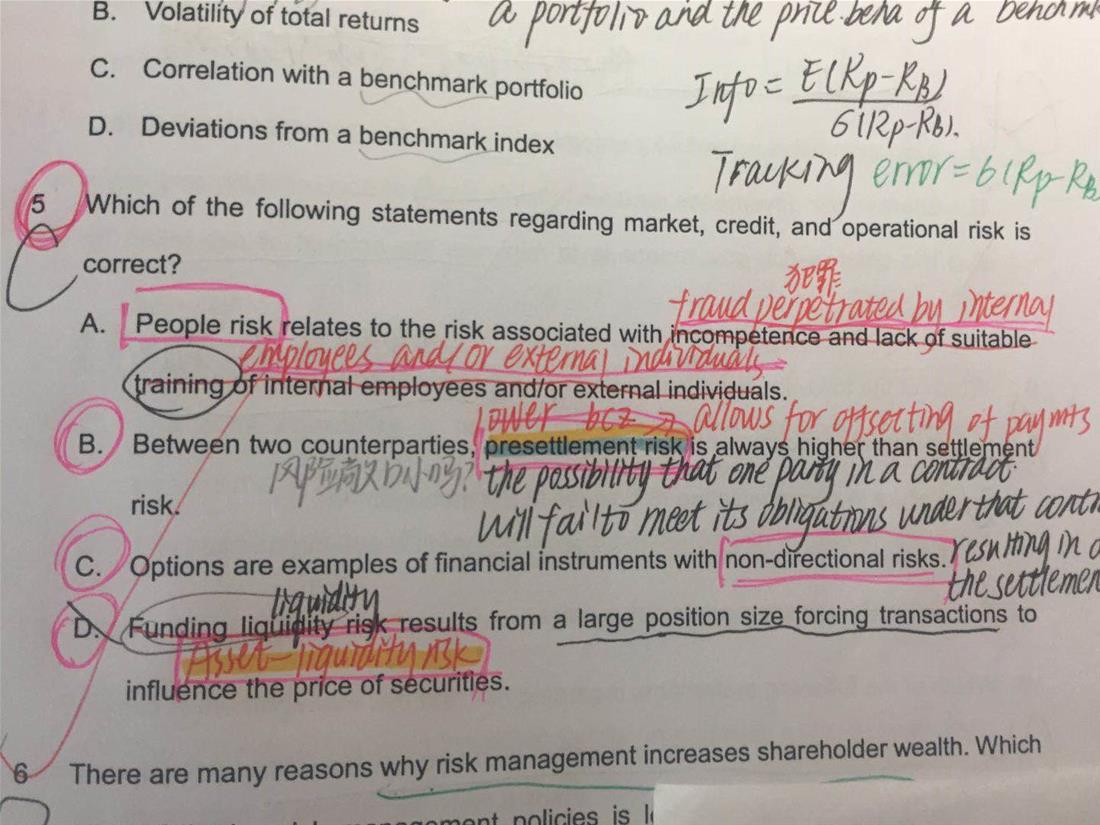 B. Volatility of total returns
a portfolio and the price beha of a benchmk
C. Correlation with a benchmark portfolio
Info = E(Rp-RB)
6(Rp-Rb).
D. Deviations from a benchmark index
Tracking error = 6(Rp-RB
5 Which of the following statements regarding market, credit, and operational risk is
correct?
犯罪
fraud perpetrated by internal
A. People risk relates to the risk associated with incompetence and lack of suitable
employees and/or external individuals
training of internal employees and/or external individuals.
lower bcz → allows for offsetting of paymts
B. Between two counterparties, presettlement risk is always higher than settlement
the possibility that one party in a contract
risk.
will fail to meet its obligations under that contr
C. Options are examples of financial instruments with non-directional risks.
resulting in
the settlemen
liquidity
D. Funding liquidity risk results from a large position size forcing transactions to
Asset-liquidity risk
influence the price of securities.
6 There are many reasons why risk management increases shareholder wealth. Which
management policies is